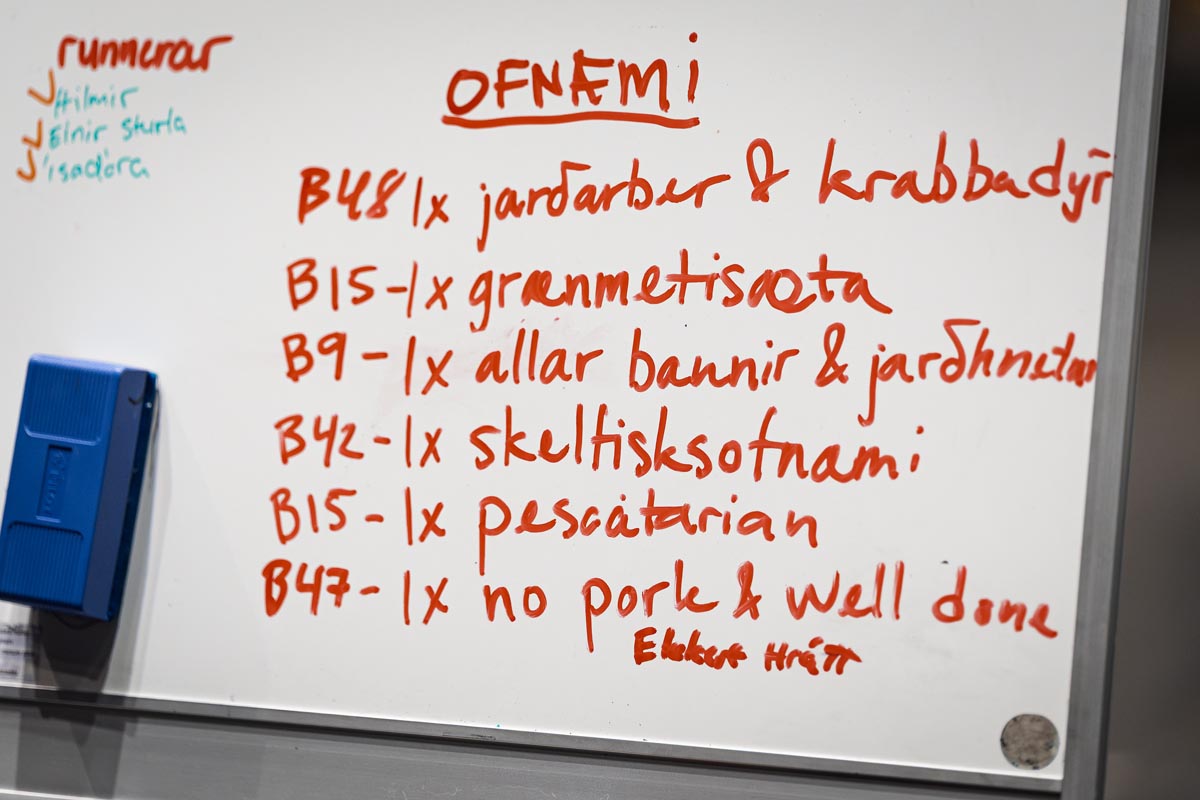 runnerar
Hilmir
Elnir Sturla
ísadóra
OFNÆMi
B48 1x jarðarber & krabbadýr
B15-1x grænmetisæta
B9-1x allar baunir & jarðhnetur
B42-1x skelfisksofnæmi
B15-1x pescatarian
B47-1x no pork & well done
Ekkert Hrátt